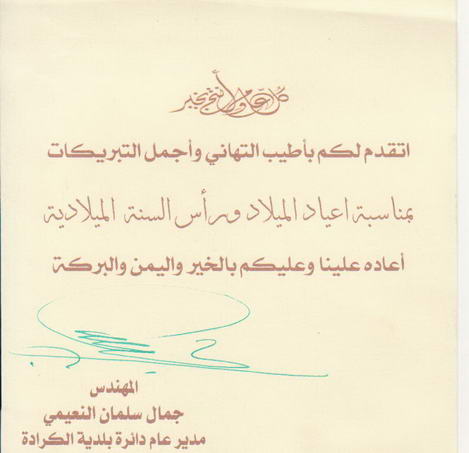 كل عام وأنتم بخير
اتقدم لكم بأطيب التهاني وأجمل التبريكات
بمناسبة اعياد الميلاد ورأس السنة الميلادية
أعاده علينا وعليكم بالخير واليمن والبركة
المهندس
جمال سلمان النعيمي
مدير عام دائرة بلدية الكرادة